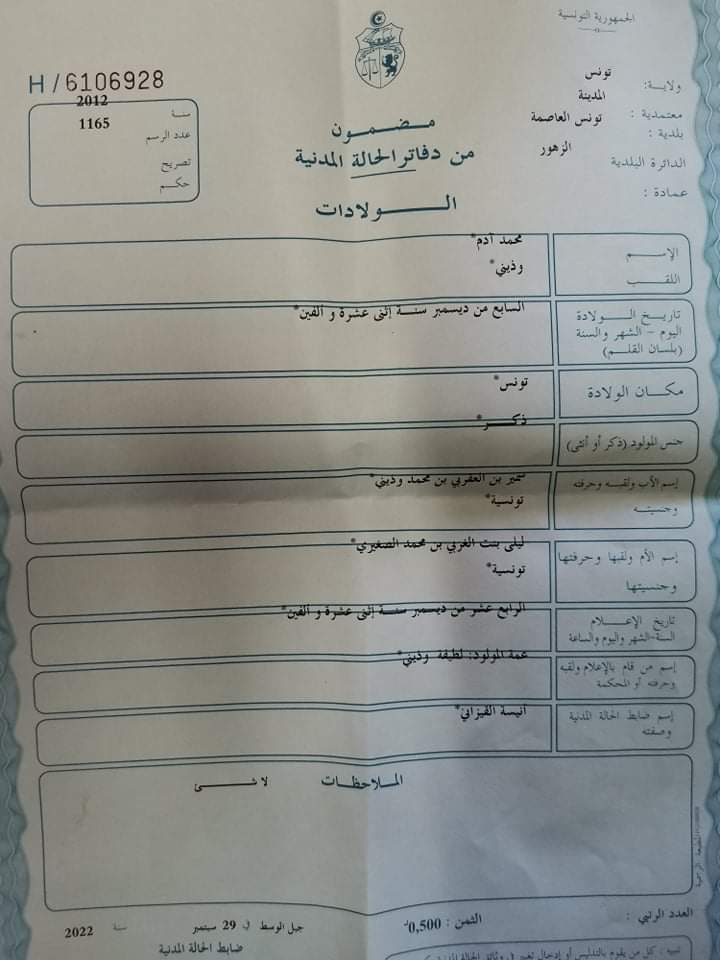 الجمهورية التونسية
ولاية: تونس
معتمدية: المدينة
بلدية: تونس العاصمة
الدائرة البلدية الزهور
عمادة:
H/6106928
سنة 2012
عدد الرسم 1165
تصريح
حكم
مضمون
من دفاتر الحالة المدنية
الولادات
الإسم محمد آدم*
اللقب وذيني*
تاريخ الولادة السابع من ديسمبر سنة إثنى عشرة و ألفين*
اليوم - الشهر والسنة
(بلسان القلم)
مكان الولادة تونس*
جنس المولود (ذكر أو أنثى) ذكر*
إسم الأب ولقبه وحرفته سمير بن العقربي بن محمد وذيني*
وجنسيته تونسية*
إسم الأم ولقبها وحرفتها ليلى بنت الغربي بن محمد الصغيري*
وجنسيتها تونسية*
تاريخ الإعلام الرابع عشر من ديسمبر سنة إثنى عشرة و ألفين*
السنة-الشهر واليوم والساعة
إسم من قام بالإعلام ولقبه عمة المولود: لطيفة وذيني*
وحرفته أو المحكمة
إسم ضابط الحالة المدنية أنيسة القيزاني*
وصفته
الملاحظات لا شئ
المطبعة الرسمية
العدد الرتبي: الثمن: 0,500د
جبل الوسط في 29 سبتمبر سنة 2022
ضابط الحالة المدنية
تنبيه: كل من يقوم بالتدليس أو إدخال تغيير في وثائق الحالة المدنية